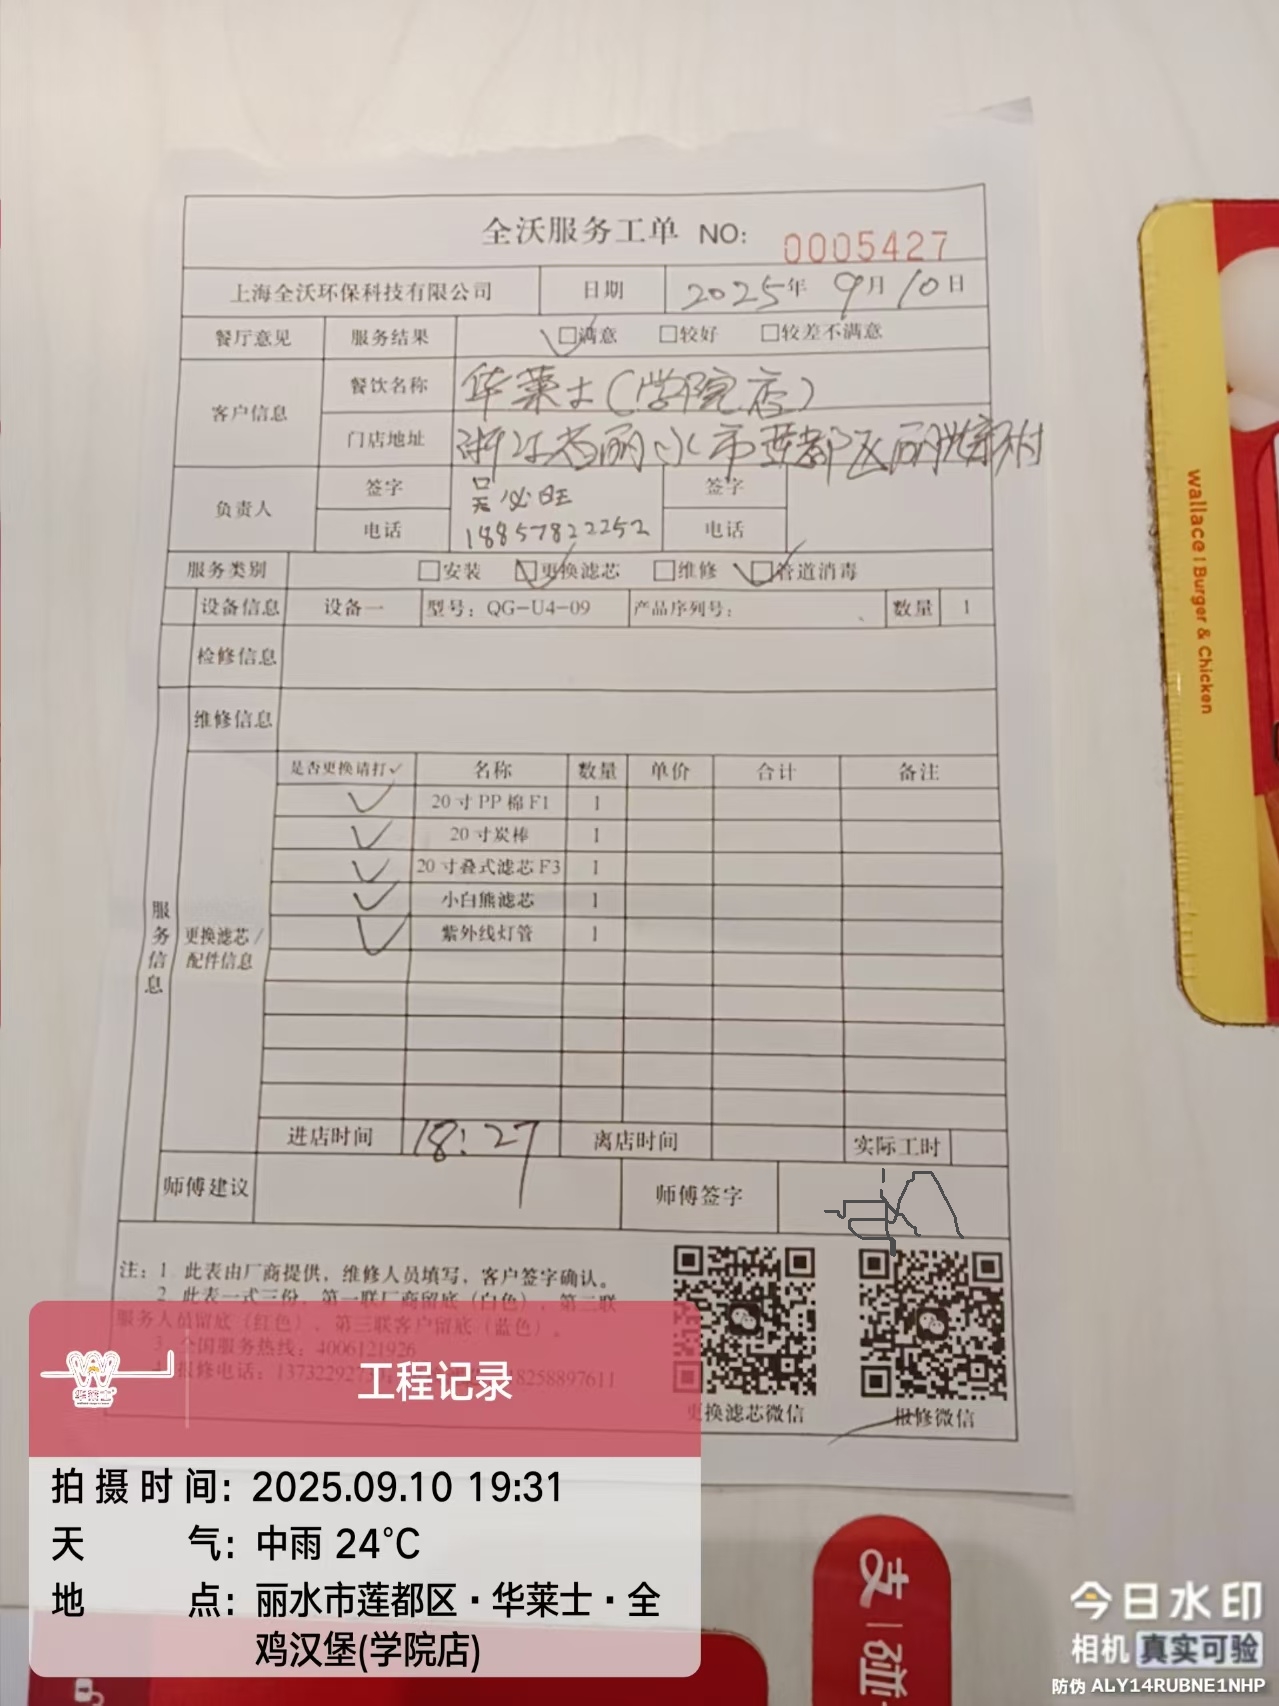 全沃服务工单 NO: 0005427
上海全沃环保科技有限公司 日期 2025年 9月10日
餐厅意见 服务结果 ☑满意 □较好 □较差不满意
客户信息 餐饮名称 华莱士(学院店)
门店地址 浙江省丽水市莲都区丽
负责人 签字 吴 签字
电话 18857822252 电话
服务类别 □安装 ☑更换滤芯 □维修 ☑管道消毒
设备信息 设备一 型号: QG-U4-09 产品序列号: 数量 1
检修信息
维修信息
服务信息
更换滤芯/配件信息
是否更换请打✓ 名称 数量 单价 合计 备注
✓ 20寸PP棉F1 1
✓ 20寸炭棒 1
✓ 20寸叠式滤芯F3 1
✓ 小白熊滤芯 1
✓ 紫外线灯管 1
进店时间 18:27 离店时间 实际工时
师傅建议 师傅签字
注: 1. 此表由厂商提供, 维修人员填写, 客户签字确认。
2. 此表一式三份, 第一联厂商留底(白色), 第二联
服务人员留底(红色), 第三联客户留底(蓝色)。
3. 全国服务热线: 4006121926
4. 报修电话: 8258897611
更换滤芯微信 报修微信
华莱士
工程记录
拍摄时间: 2025.09.10 19:31
天气: 中雨 24°C
地点: 丽水市莲都区·华莱士·全
鸡汉堡(学院店)
wallace | Burger & Chicken
支 | 碰
今日水印
相机 真实可验
防伪 ALY14RUBNE1NHP